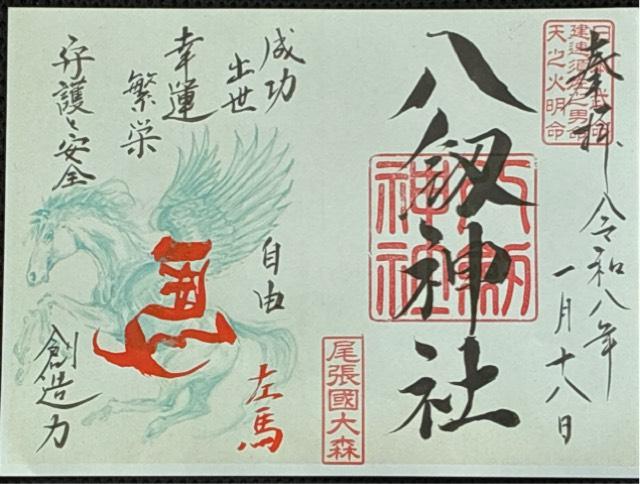 奉拝
令和八年
一月十八日
建速須佐之男命
天之火明命
八釼神社
尾張國大森
成功
出世
幸運
繁栄
守護と安全
自由
左馬
創造力